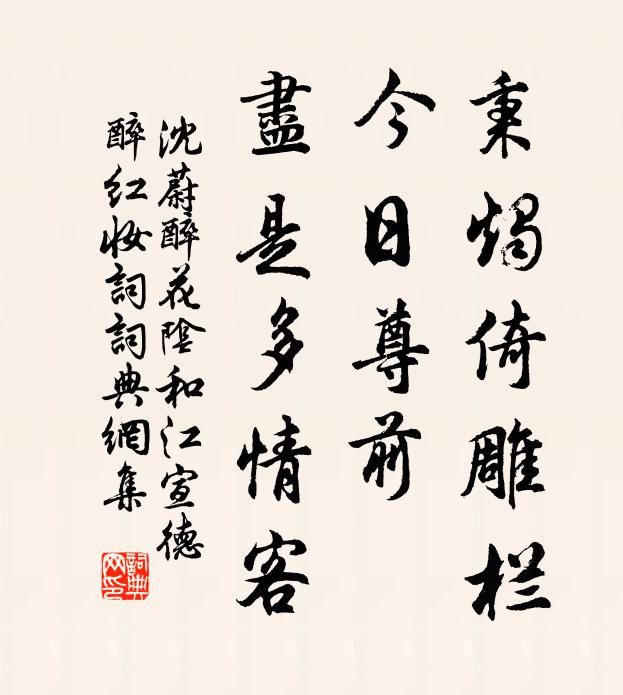 秉烛倚雕栏
今日尊前
盡是多情客
沈蔚醉花陰和江宣德
醉红妆詞詞典網集
詞典
网印